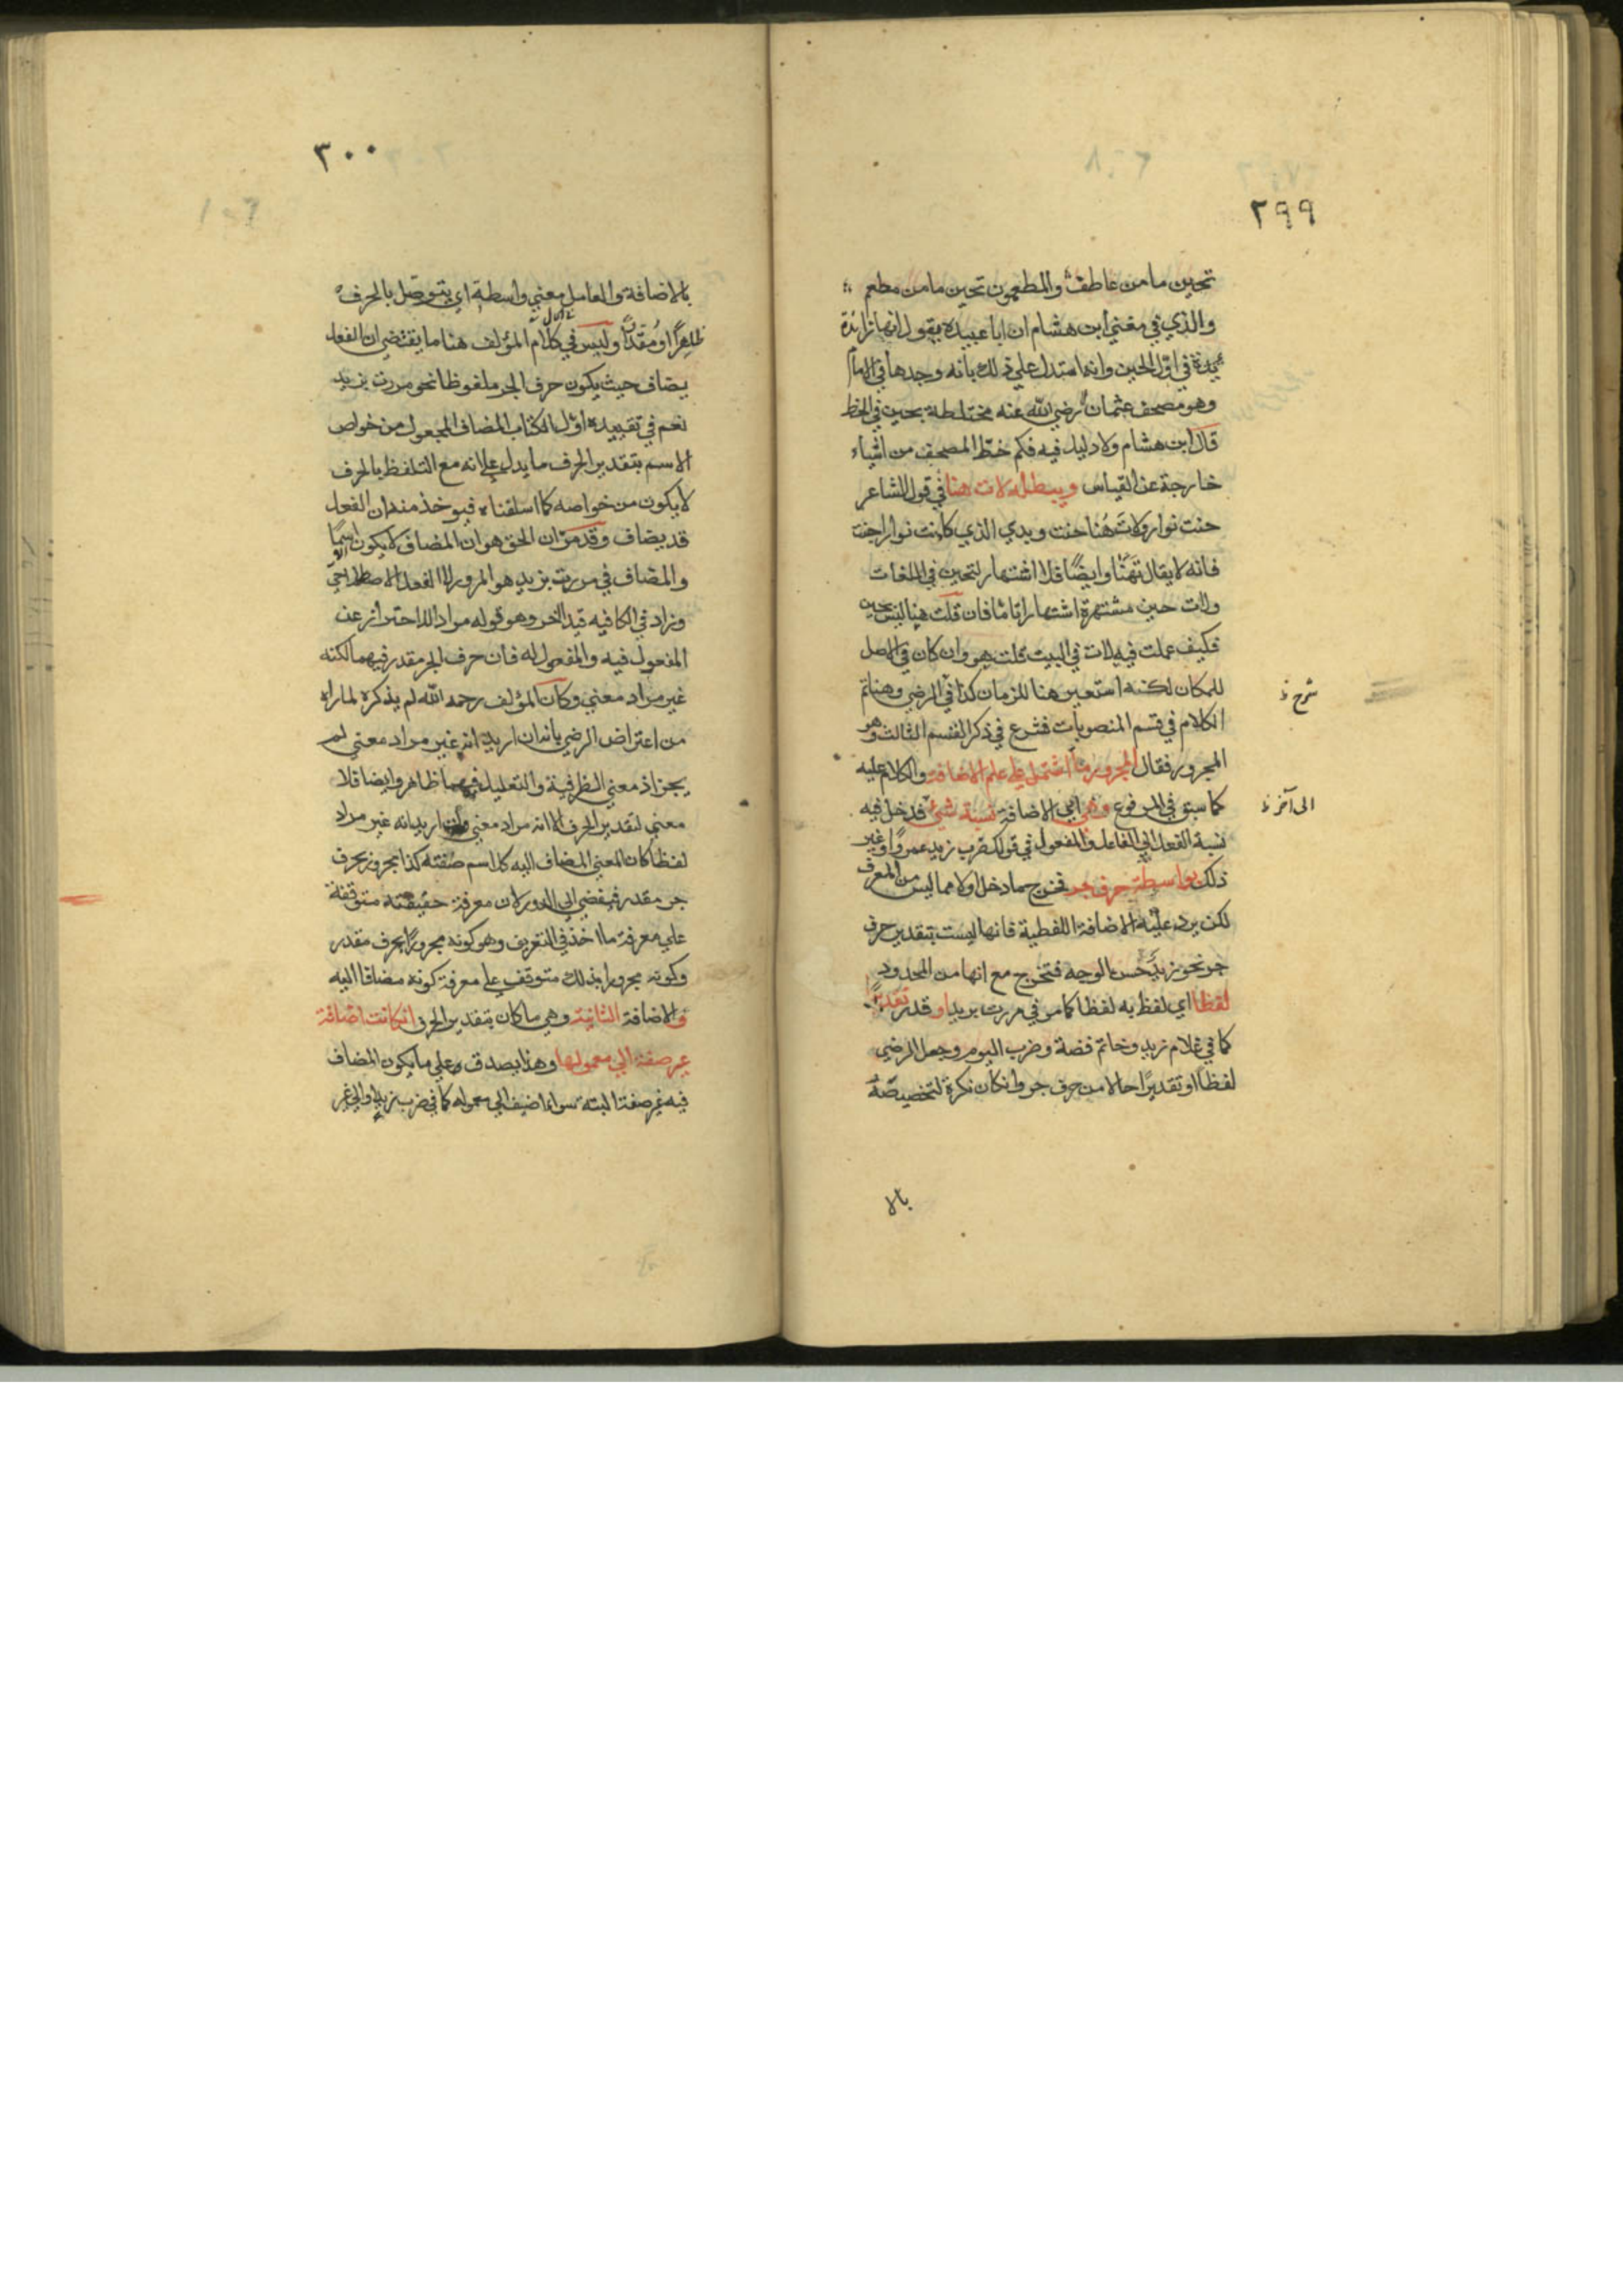 ٢٩٩
تحين ما من عاطف والمطعمون تحين ما من مطعم
والذي في مغني ابن هشام ان ابا عبيدة يقول انها زائدة
في اول الحين وانه استدل علي ذلك بانه وجدها في الامام
وهو مصحف عثمان رضي الله عنه مختلطة بحين في الخط
قال ابن هشام ولا دليل فيه فكم خط المصحف من اشياء
خارجة عن القياس ويبطله لات هنا في قول الشاعر
حنت نوار ولات هُنا حنت وبدي الذي كانت نوار اجنت
فانه لا يقال تهنا وايضًا فلا اشتهار لتحين في اللغات
ولات حين مشتهرة اشتهارا تاما فان قلت هنا ليس بحين
فكيف عملت فيه لات في البيت قلت هو وان كان في الاصل
للمكان لكنه استعير هنا للزمان كذا في الرضي وهنا تم
شرح
الكلام في قسم المنصوبات فشرع في ذكر القسم الثالث وهو
المجرور فقال المجرور ما اشتمل علي علم الاضافة والكلام عليه
كما سبق في المرفوع وهي اي الاضافة نسبة شيء فدخل فيه
الى آخر
نسبة الفعل الي الفاعل والمفعول في قولك ضرب زيد عمروا وغير
ذلك بواسطة حرف جر فخرج مما دخل اولا مما ليس من المعرف
لكن يرد عليه الاضافة اللفظية فانها ليست بتقدير حرف
جر نحو زيد حسن الوجه فتخرج مع انها من المحدود
لفظا اي لفظ به لفظا كما مر في مررت بزيد او قدر تقديرًا
كما في غلام زيد وخاتم فضة وضرب اليوم وجعل الرضي
لفظًا او تقديرًا حالا من حرف جر وان كان نكرة لتخصيصه
بالا
٣٠٠
بالاضافة والعامل معني واسطة اي يتوصل بالحرف
ظاهرًا او مُقدّرًا وليس في كلام المؤلف هنا ما يقتضي ان الفعل
يضاف حيث يكون حرف الجر ملفوظا نحو مررت بزيد
نعم في تقييده اول الكتاب المضاف المجعول من خواص
الاسم بتقدير الحرف ما يدل علي انه مع التلفظ بالحرف
لا يكون من خواصه كما اسلفناه فيوخذ منه ان الفعل
قد يضاف وقد مرّ ان الحق هو ان المضاف لا يكون الا اسمًا
والمضاف في مررت بزيد هو المرور لا الفعل الاصطلاحيّ
وزاد في الكافيه قيدا اخر وهو قوله مرادا للاحتراز عن
المفعول فيه والمفعول له فان حرف الجر مقدر فيهما لكنه
غير مراد معني وكان المؤلف رحمه الله لم يذكره لما راه
من اعتراض الرضي بانه ان اريد انه غير مراد معني لم
يجز اذ معني الظرفية والتعليل فيهما ظاهر وايضا فلا
معني لتقدير الحرف الا انه مراد معني وان اريد انه غير مراد
لفظا كان المعني المضاف اليه كل اسم صفته كذا مجرور بحرف
جر مقدر فيفضي الي الدور لان معرفة حقيقته متوقفة
علي معرفة ما اخذ في التعريف وهو كونه مجرورًا بحرف مقدر
وكونه مجرورا بذلك متوقف علي معرفة كونه مضافا اليه
والاضافة الثانية وهي ما كان بتقدير الحرف ان كانت اضافة
غير صفة الي معمولها وهذا يصدق علي ما يكون المضاف
فيه غير صفة البتة سواء اضيف الي معموله كما في ضرب زيد او الي غير